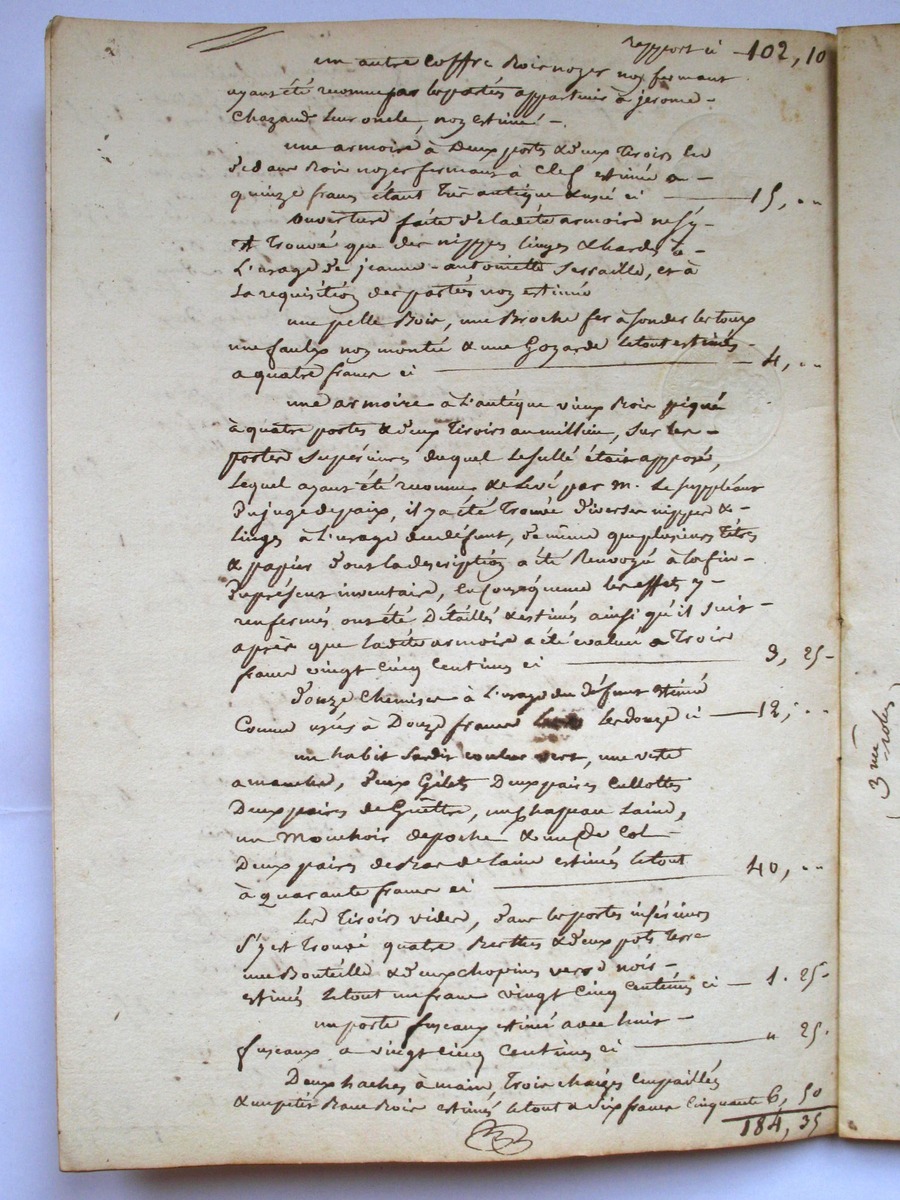 rapport ci 102, 10
un autre Coffre Bois noyer non fermant
ayant été reconnu par les partés appartenir à jerome
Chazaud leur oncle, non estimé
une armoire à Deux ports & deux tiroirs
Bois noyer fermant à Clef estimée a
quinze francs étant très antique & usé ci 15, ..
ouverture faite de la dite armoire ne s'y
Trouvé que des nippes linges & hardes
L'usage de jeanne-antoinette Serraille, et à
La requisition des partés non estimé
une pelle Bois, une Broche fer à sonder les toux
une faulx non montée & une Gozarde le tout estimés
a quatre francs ci 4, ..
une armoire à L'antique vieux Bois piqué
à quatre portes & deux tiroirs au millieu, sur les
portes Supérieures duquel le scellé était apposé,
Lequel ayant été reconnu & Levé par m. Le suppléant
Du juge de paix, il y a été trouvé diverses nippes &
linges à L'usage du défunt, de même que plusieurs titres
& papier dont la description a été Renvoyé à la fin
Du présent inventaire, en Conséquence les effets y
renfermés ont été Détaillés & estimés ainsi qu'il suit
après que ladite armoire a été évalué a Trois
francs vingt Cinq Centimes ci 3, 25
Douze Chemises à L'usage du défunt estimé
Comme usés à Douze francs les douze ci 12, ..
un habit couleur vert, une veste
a manche, deux Gilets Deux paires Cullottes
Deux paires de Guêttre, un Chapeau Laine,
un Mouchoir de poche & un de Col
Deux paires de Bas de laine estimés le tout
à quarante francs ci 40, ..
Les Tiroirs vides, dans les portes inférieures
s'y est Trouvé quatre & deux pots Terre
une Bouteille & deux chopines verre noir
estimés le tout un franc vingt Cinq Centimes ci 1. 25
un porte fuseaux estimé avec huit
fuseaux a vingt Cinq Centimes ci " 25.
Deux haches à main Trois chaises empaillés
& un petit Banc Bois estimés le tout à Six francs Cinquante 6, 50
184, 35
3me rôle